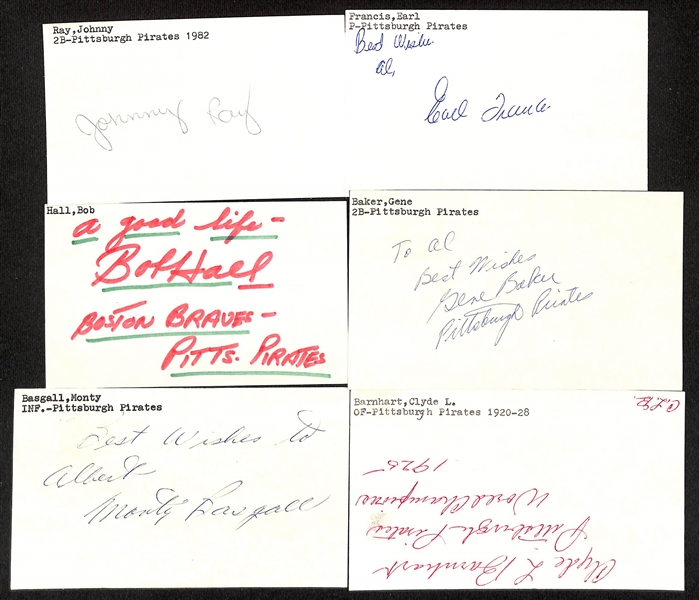 Ray,Johnny
2B-Pittsburgh Pirates 1982
Johnny Ray
Francis,Earl
P-Pittsburgh Pirates
Best Wishes
Al,
Earl Francis
Hall,Bob
a good life-
Bob Hall
BOSTON BRAVES-
PITTS. PIRATES
Baker,Gene
2B-Pittsburgh Pirates
To Al
Best Wishes
Gene Baker
Pittsburgh Pirates
Basgall,Monty
INF.-Pittsburgh Pirates
Best Wishes to
Albert
Monty Basgall
Barnhart,Clyde L.
OF-Pittsburgh Pirates 1920-28
Clyde L Barnhart
Pittsburgh Pirates
World Champions
1925